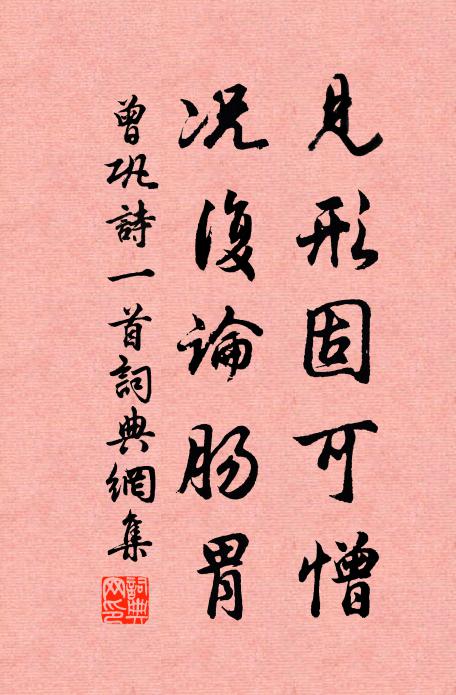 見形固可憎
况復論肠胃
曾巩詩一首詞典網集
詞典网印